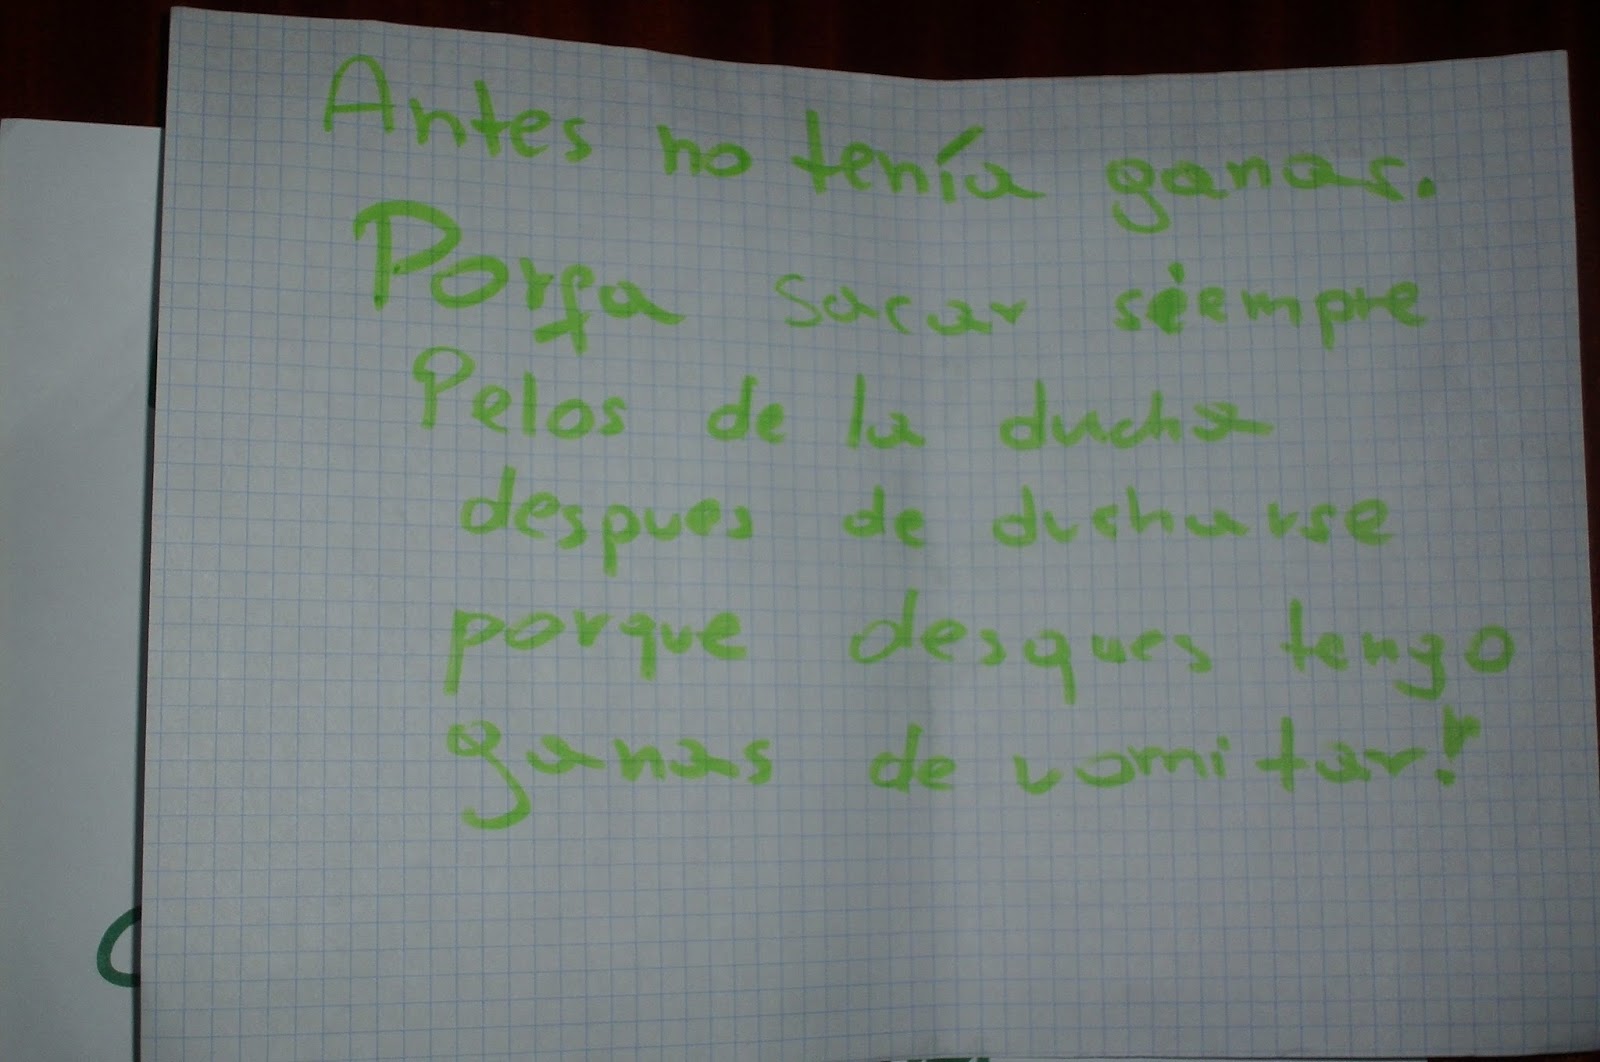 Antes no tenía ganas.
Porfa sacar siempre
Pelos de la ducha
despues de ducharse
porque desques tengo
ganas de vomitar!